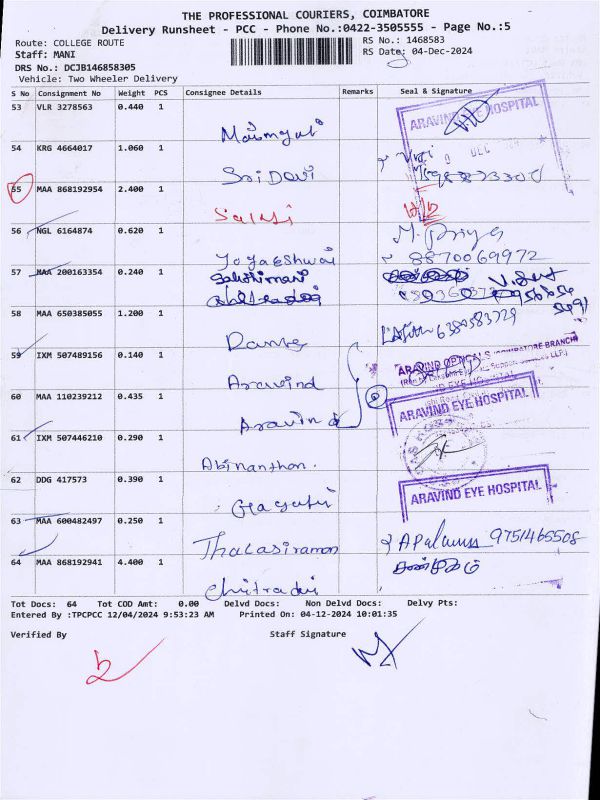 THE PROFESSIONAL COURIERS, COIMBATORE
Delivery Runsheet - PCC - Phone No.:0422-3505555 - Page No.:5
Route: COLLEGE ROUTE
RS No.: 1468583
Staff: MANI
RS Date: 04-Dec-2024
DRS No.: DCJB146858305
Vehicle: Two Wheeler Delivery
S No Consignment No Weight PCS Consignee Details Remarks Seal & Signature
53 VLR 3278563 0.440 1
ARAVIND EYE HOSPITAL
54 KRG 4664017 1.060 1
Sri Devi
55 MAA 868192954 2.400 1
56 NGL 6164874 0.620 1
M. Priya
8870069972
57 MAA 200163354 0.240 1
58 MAA 650385055 1.200 1
6380583729
59 IXM 507489156 0.140 1
Aravind
ARAVIND OPTICALS (COIMBATORE BRANCH)
60 MAA 110239212 0.435 1
Aravind
ARAVIND EYE HOSPITAL
61 IXM 507446210 0.290 1
Abinanthan.
62 DDG 417573 0.390 1
Gayatri
ARAVIND EYE HOSPITAL
63 MAA 600482497 0.250 1
Thalasiraman
9751465508
64 MAA 868192941 4.400 1
Chitradevi
சண்முகம்
Tot Docs: 64 Tot COD Amt: 0.00 Delvd Docs: Non Delvd Docs: Delvy Pts:
Entered By :TPCPCC 12/04/2024 9:53:23 AM Printed On: 04-12-2024 10:01:35
Verified By Staff Signature